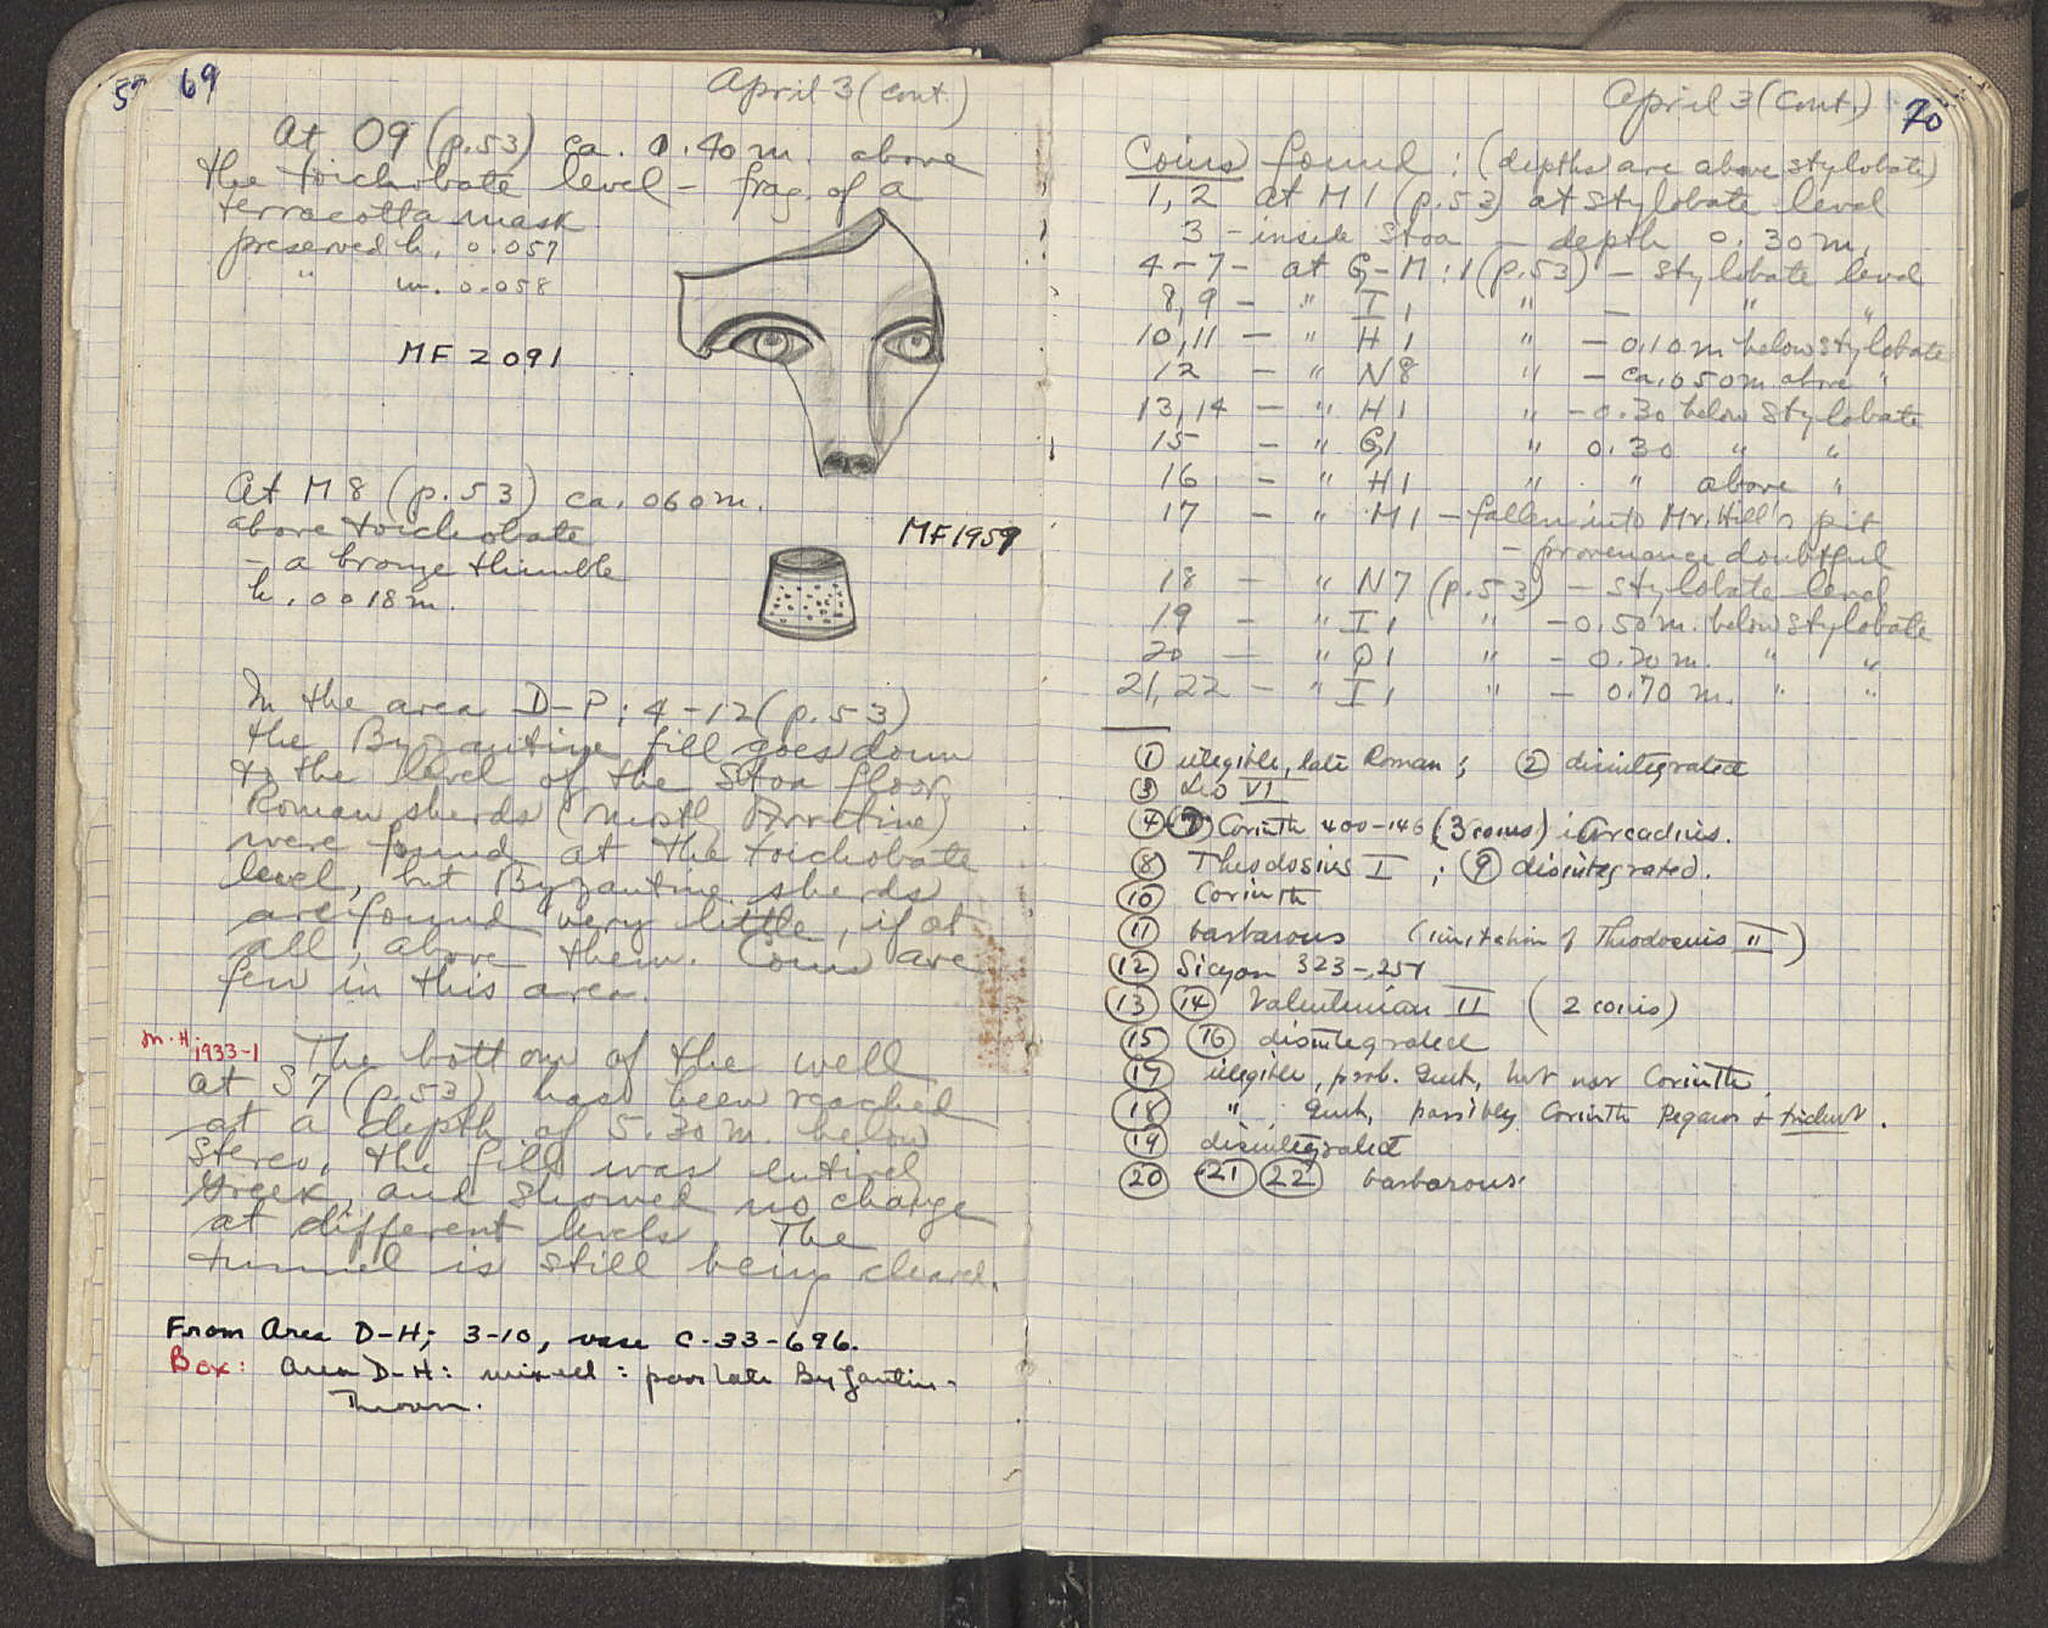 69
April 3 (cont.)
At O9 (p.53) ca. 0.40 m. above
the toichobate level - frag. of a
terracotta mask
preserved h. 0.057
" w. 0.058
MF 2091
At M 8 (p.53) ca. 060 m.
above toichobate
- a bronze thimble
h. 0018 m.
MF1959
In the area D-P: 4-12 (p.53)
the Byzantine fill goes down
to the level of the Stoa floor.
Roman sherds (mostly Arretine)
were found at the toichobate
level, but Byzantine sherds
are found very little, if at
all, above them. Coins are
few in this area.
M.H. 1933-1
The bottom of the well
at S7 (p.53) has been reached
at a depth of 5.30 m. below
Stereo, the fill was entirely
Greek, and showed no change
at different levels. The
tunnel is still being cleared.
From Area D-H; 3-10, vase C-33-696.
Box: Area D-H: mixed: poor late Byzantine-
Thrown.
April 3 (cont.) 70
Coins found : (depths are above stylobate)
1, 2 at M1 (p.53) at stylobate level
3 - inside Stoa - depth 0.30 m.
4-7 - at G-M:1 (p.53) - stylobate level
8, 9 - " I1 " - " "
10, 11 - " H1 " - 0.10 m below stylobate
12 - " N8 " - ca. 050 m. above "
13, 14 - " H1 " - 0.30 below stylobate
15 - " G1 " 0.30 " "
16 - " H1 " " above "
17 - " M1 - fallen into Mr. Hill's pit
- provenance doubtful
18 - " N7 (p.53) - stylobate level
19 - " I1 " - 0.50 m. below stylobate
20 - " O1 " - 0.70 m. " "
21, 22 - " I1 " - 0.70 m. " "
① illegible, late Roman ; ② disintegrated
③ Leo VI
④-⑦ Corinth 400-146 (3 coins) ; Arcadius.
⑧ Theodosius I ; ⑨ disintegrated.
⑩ Corinth
⑪ barbarous (imitation of Theodosius II)
⑫ Sicyon 323-251
⑬ ⑭ Valentinian II (2 coins)
⑮ ⑯ disintegrated
⑰ illegible, prob. Greek, but not Corinth
⑱ " Greek, possibly Corinth Pegasus + trident.
⑲ disintegrated
⑳ ㉑ ㉒ barbarous.